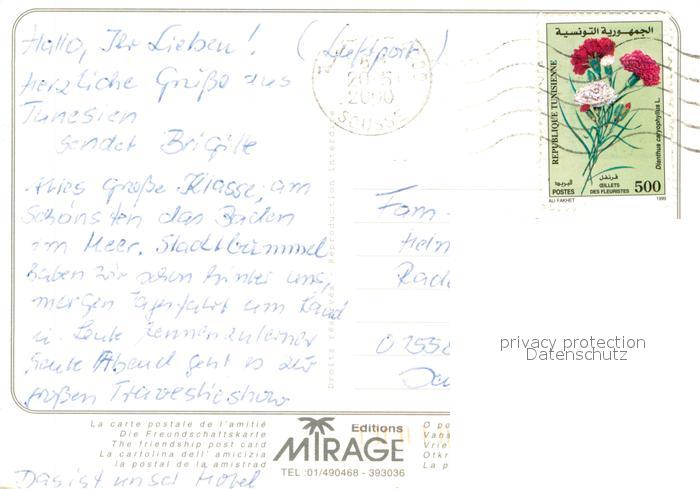 Hallo, Ihr Lieben! (Luftpost)
Herzliche Grüße aus
Tunesien
sendet Brigitte
Alles große Klasse, am
Schönsten das Baden
im Meer. Stadtbummel
haben wir schon hinter uns,
morgen Tagesfahrt um Land
u. Leute kennenzulernen
heute Abend geht es zur
großen Travestieshow
Das ist unser Hotel
La carte postale de l'amitié
Die Freundschaftskarte
The friendship post card
La cartolina dell' amicizia
la postal de la amistrad
Editions
MIRAGE
TEL :01/490468 - 393036
Droits réservés - Reproduction Interdite
2000
SOUSSE
الجمهورية التونسية
REPUBLIQUE TUNISIENNE
Dianthus caryophyllus L.
البريد
POSTES
قرنفل
ŒILLETS
DES FLEURISTES
500
ALI FAKHET
1999
Fam.
Hein
Rade
privacy protection
Datenschutz
O po
Vans
Vrie
Otkr
La p